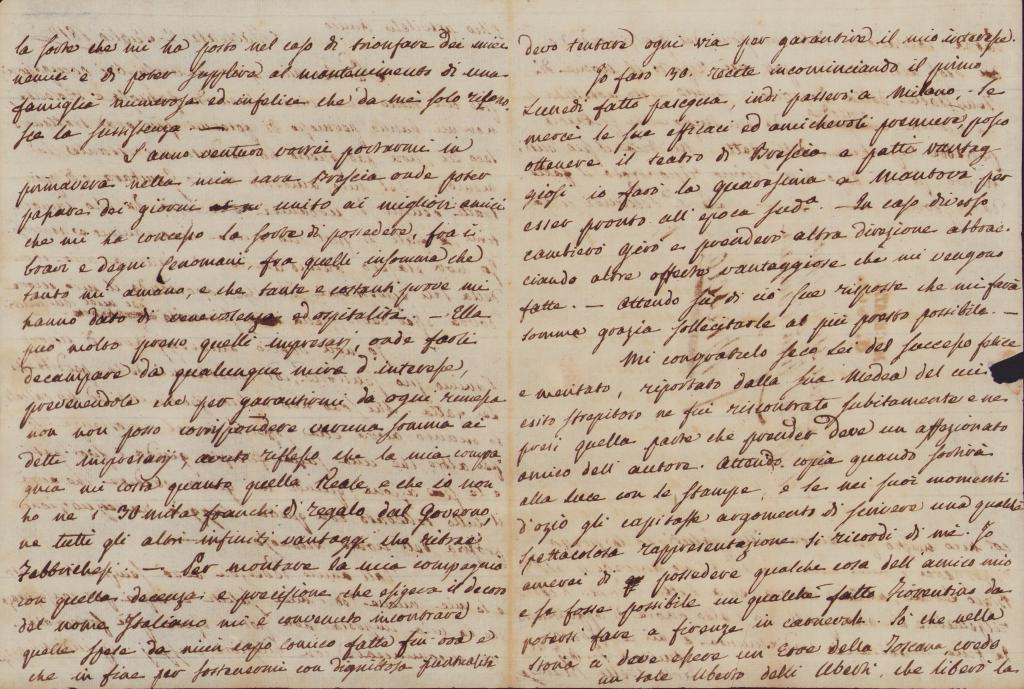 la sorte che mi ha posto nel caso di trionfare dei miei
nemici e di poter supplire al mantenimento di una
famiglia numerosa ed infelice che da me solo ripone
sua la sussistenza —
L'anno venturo vorrei portarmi in
primavera nella mia cara Brescia onde poter
passare dei giorni unito ai migliori amici
che mi ha concesso la sorte di possedere, fra i
bravi e degni Cenomani, fra quelli insomma che
tanto mi amano, e che tante e costanti prove mi
hanno dato di benevolenza ed ospitalità. — Ella
può molto presso quelli impresarj, onde farli
decampare da qualunque mira d'interesse,
prevenendola che per garantirmi da ogni rimessa
non non posso corrispondere veruna somma ai
detti impresarj, avuto riflesso che la mia compa
gnia mi costa quanto quella Reale, e che io non
ho ne i 30 mila franchi di regalo dal Governo,
ne tutti gli altri infiniti vantaggi che ritrae
Fabbrichesi. — Per montare la mia compagnia
con quella decenza e precisione che esigeva il decoro
del nome Italiano mi è convenuto incontrare
quelle spese da niun capo comico fatte fin ora e
che in fine per sostenermi con dignitosa puntualità
devo tentare ogni via per garantire il mio interesse.
Io farò 30. recite incominciando il primo
Lunedì fatto pasqua, indi passerò a Milano. — Se
mercè le sue efficaci ed amichevoli premure, posso
ottenere il teatro di Brescia a patti vantag
giosi io farò la quaresima a Mantova per
esser pronto all'epoca sud.a — In caso diverso
cambierò giro e prenderò altra direzione abbrac
ciando altre offerte vantaggiose che mi vengono
fatte. — Attendo su di ciò sue risposte che mi farà
somma grazia sollecitarle al più presto possibile. —
Mi congratulo seco Lei del successo felice
e meritato, riportato dalla sua Medea del cui
esito strepitoso ne fui riscontrato subitamente e ne
presi quella parte che prender deve un affezionato
amico dell'autore. Attendo copia quando sortirà
alla luce con le stampe, e se nei suoi momenti
d'ozio gli capitasse argomento di scrivere una qualche
spettacolosa rappresentazione si ricordi di me. Io
amerei di possedere qualche cosa dell'amico mio
e se fosse possibile un qualche fatto Fiorentino da
potersi fare a Firenze in carnevale. So che nella
storia ci deve essere un Eroe della Toscana, credo
un tale Uberto delli Uberti, che liberò la